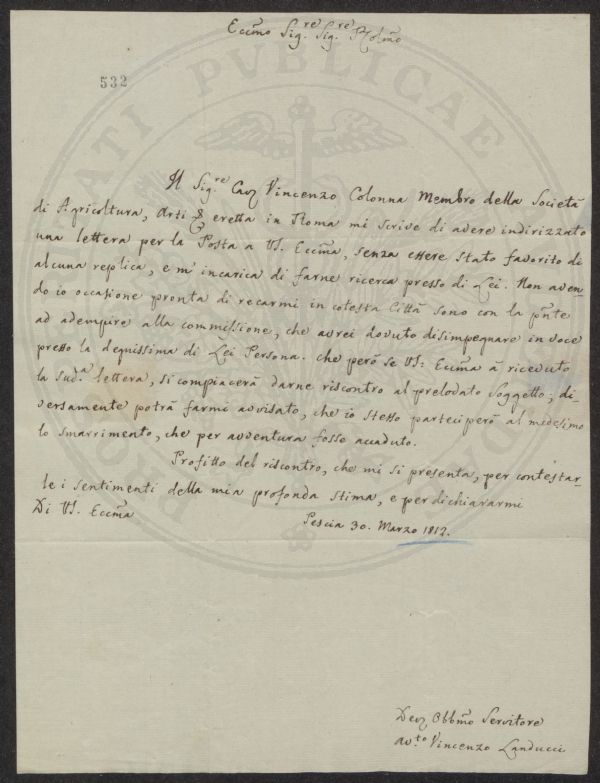 Eccmo Sigre Sigre Plolmo
532
PVBLICAE
Il Sigre Cav Vincenzo Colonna Membro della Società
di Agricoltura, Arti & eretta in Roma mi scrive di avere indirizzato
una lettera per la Posta a VS. Eccma, senza essere stato favorito di
alcuna replica, e m'incarica di farne ricerca presso di Lei. Non aven-
do io occasione pronta di recarmi in cotesta Città sono con la pnte
ad adempire alla commissione, che avrei dovuto disimpegnare in voce
presso la degnissima di Lei Persona. che però se VS: Eccma à ricevuto
la sud.a lettera, si compiacerà darne riscontro al prelodato Soggetto; di-
versamente potrà farmi avvisato, che io stesso parteciperò al medesimo
lo smarrimento, che per avventura fosse accaduto.
Profitto del riscontro, che mi si presenta, per contestar-
le i sentimenti della mia profonda stima, e per dichiararmi
Di VS. Eccma
Pescia 30. Marzo 1812.
Dev Obbmo Servitore
Avto Vincenzo Landucci